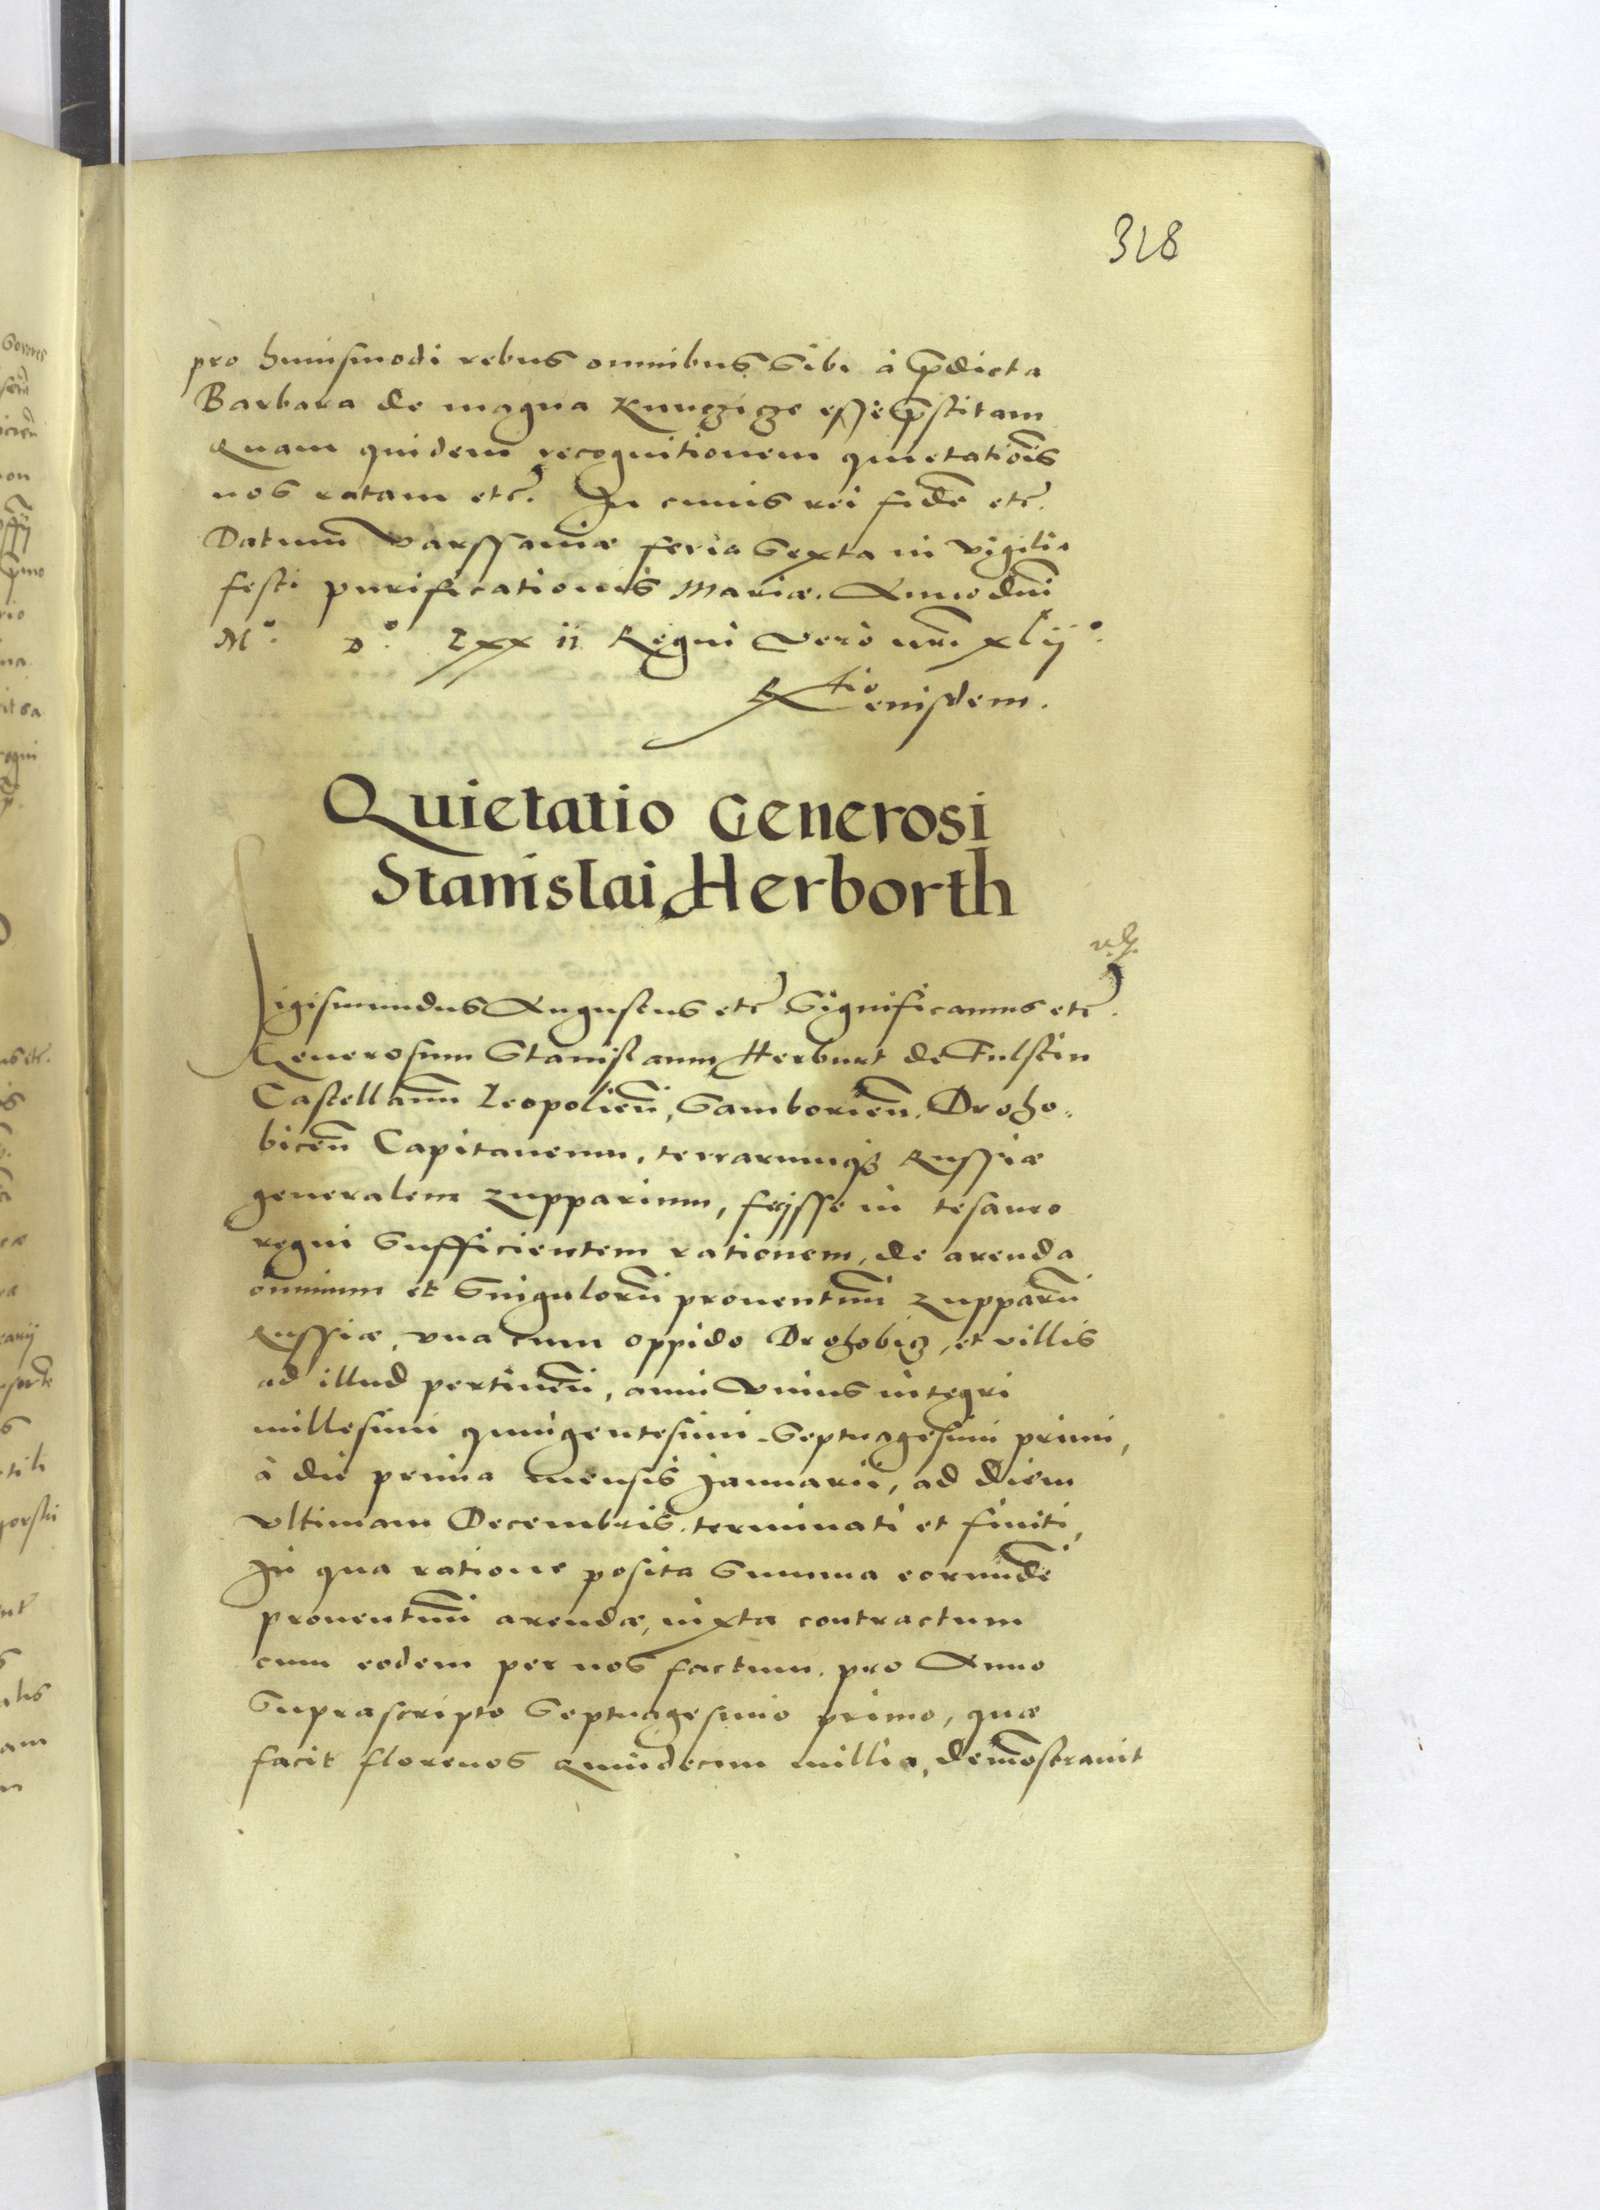 318
pro huiusmodi rebus omnibus sibi à p̄dicta
Barbara de magna Kunczicze esse p̄stitam
Quam quidem recognitionem quietatiōis
nos ratam etc̄. In cuius rei fidē etc̄.
Datum Varssaviæ feria sexta in vigilia
festi purificationis Mariæ. Anno dn̄i
M°. D°. Lxxii Regni vero nr̄i xlii°.
R̄tio eiusdem.
Quietatio Generosi
Stanislai Herborth
Sigismundus Augustus etc̄ Significamus etc̄.
Generosum Stanislaum Herburt de Fulstin
Castellanū Leopolien̄, Samborien̄. Droho-
bicen̄ Capitaneum, terrarumq̨ Russiæ
generalem zupparium, fecisse in tesauro
regni sufficientem rationem, de arenda
omnium et singulorū prouentuū zupparū
Russiæ, vna cum oppido Drohobicz, et villis
ad illud pertinen̄, anni vnius integri
millesimi quingentesimi septuagesimi primi,
à die prima mensis Januarii, ad diem
vltimam Decembris. terminati et finiti,
In qua ratione posita summa eorundē
prouentuū arendæ, iuxta contractum
cum eodem per nos factum. pro Anno
suprascripto septuagesimo primo, quæ
facit florenos quindecim millia, demōstrauit